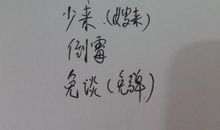 少来（嫂来）
倒霉
免谈（免弹）